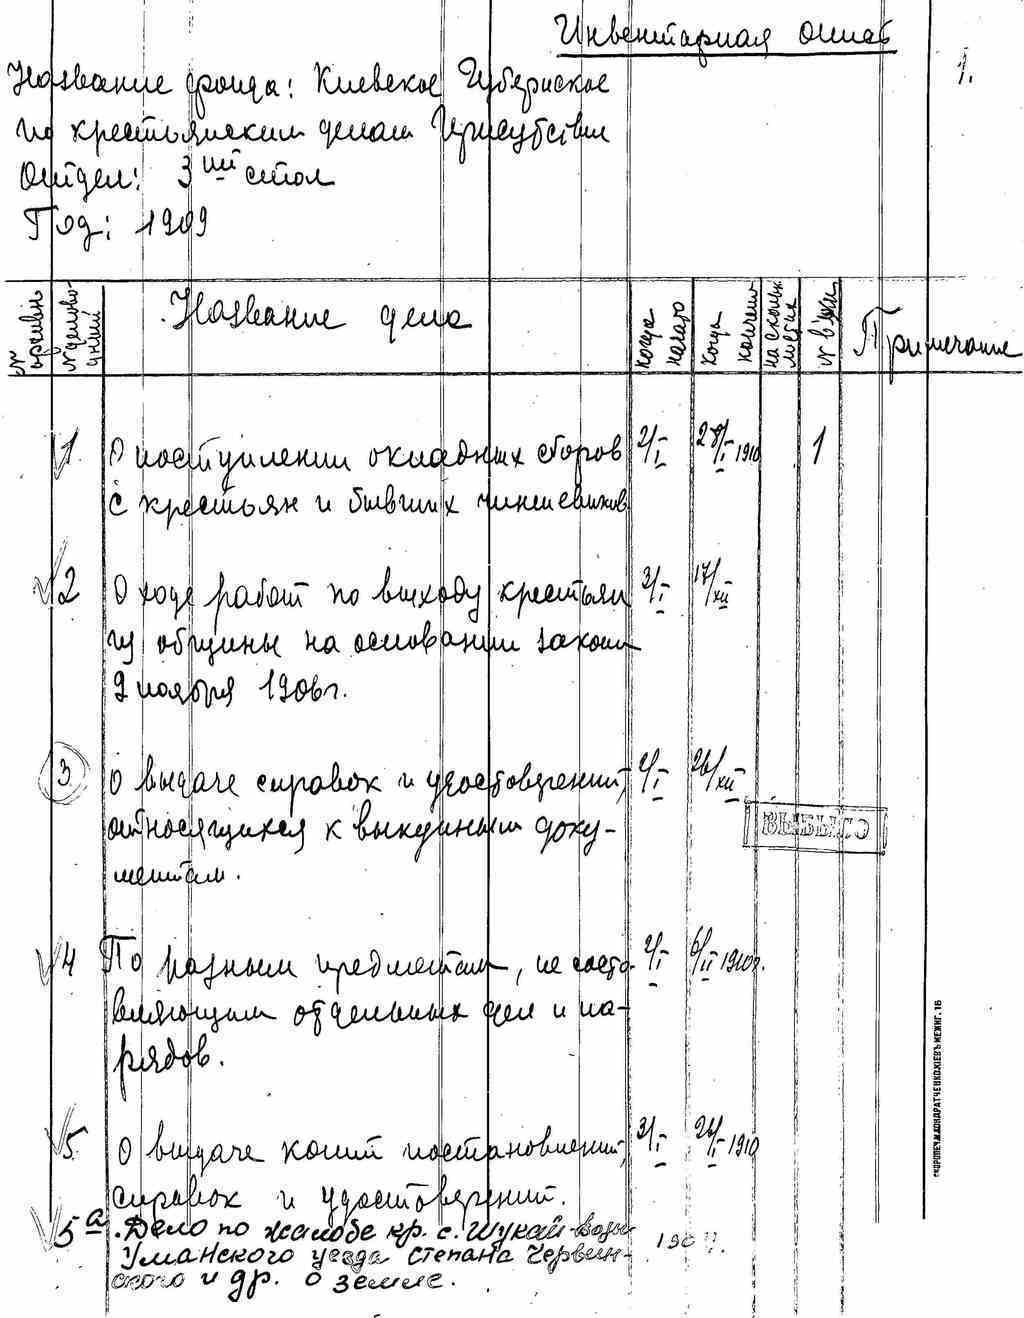 Инвентарная опись
1.
Название фонда: Киевское Губернское
по крестьянским делам Присутствие
Отдел: 3ий стол
Год: 1909
№ архивн
№ делопроизв
Название дела
Когда начато
Когда кончено
на скольк. листах
№ вязки
Примечание
1 О поступлении окладных сборов 2/I 28/I 1910 1
с крестьян и бывших чиншевиков
2 О ходе работ по выходу крестьян 3/I 17/XII
из общины на основании закона
9 ноября 1906 г.
3 О выдаче справок и удостоверений, 2/I 26/XII
относящихся к выкупным доку-
ВЫБЫЛО
ментам.
4 По разным предметам, не соста- 2/I 6/II 1910 г.
вляющим отдельных дел и на-
рядов.
5 О выдаче копий постановлений, 3/I 26/I 1910
справок и удостоверений.
5а Дело по жалобе кр. с. Шукай-воды
Уманского уезда Степана Червин-
ского и др. о земле.